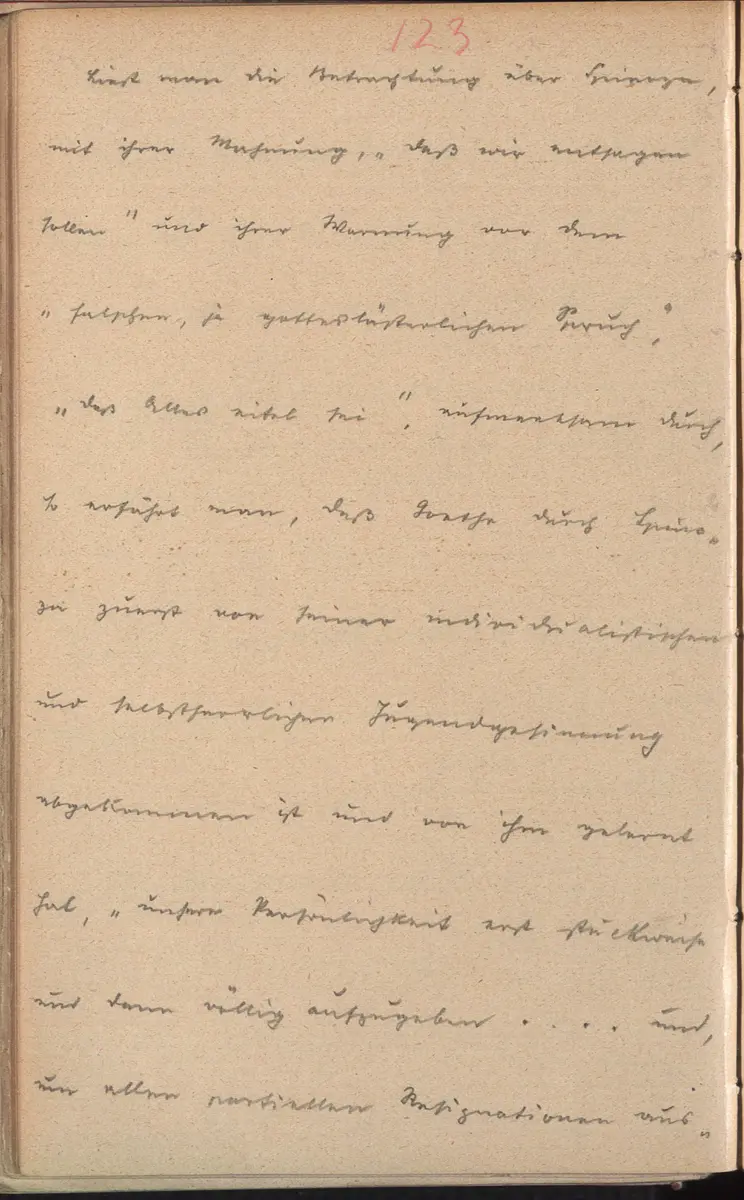 123
Liest man die Betrachtung über Spinoza,
mit ihrer Mahnung, „daß wir entsagen
sollen" und ihrer Warnung vor dem
„falschen, ja gotteslästerlichen Spruch,"
„daß Alles eitel sei", aufmerksam durch,
so erfährt man, daß Goethe durch Spino„
za zuerst von seiner individualistischen
und selbstherrlichen Jugendgesinnung
abgekommen ist und von ihm gelernt
hat, „unsere Persönlichkeit erst stückweise
und dann völlig aufzugeben .... und,
um allen partiellen Resignationen aus„